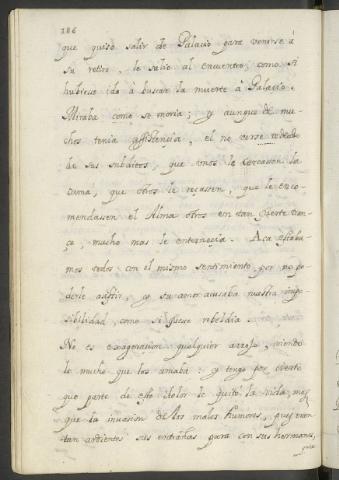 186
que quiso salir de Palacio para venirse à
su retiro, le salio al encuentro, como si
hubiese ido à buscar la muerte à Palacio.
Miraba como se moria; y aunque de mu-
chos tenia assistencia, el no verse rodeado
de sus subditos, que unos le cercassen la
cama, que otros le rezassen, que le enco-
mendassen el Alma otros en tan fuerte tran-
çe, mucho mas le enternecia. Aca estaba-
mos todos con el mismo sentimiento por no po-
derle asistir, y su amor acusaba nuestra impo-
sibilidad, como si fuese rebeldia.
No es exageracion qualquier arrojo, viendo
lo mucho que los amaba: y tengo por cierto
que parte de este dolor le quitò la vida, mas
que la invasion de los malos humores, pues eran
tan ardientes sus entrañas para con sus hermanos,